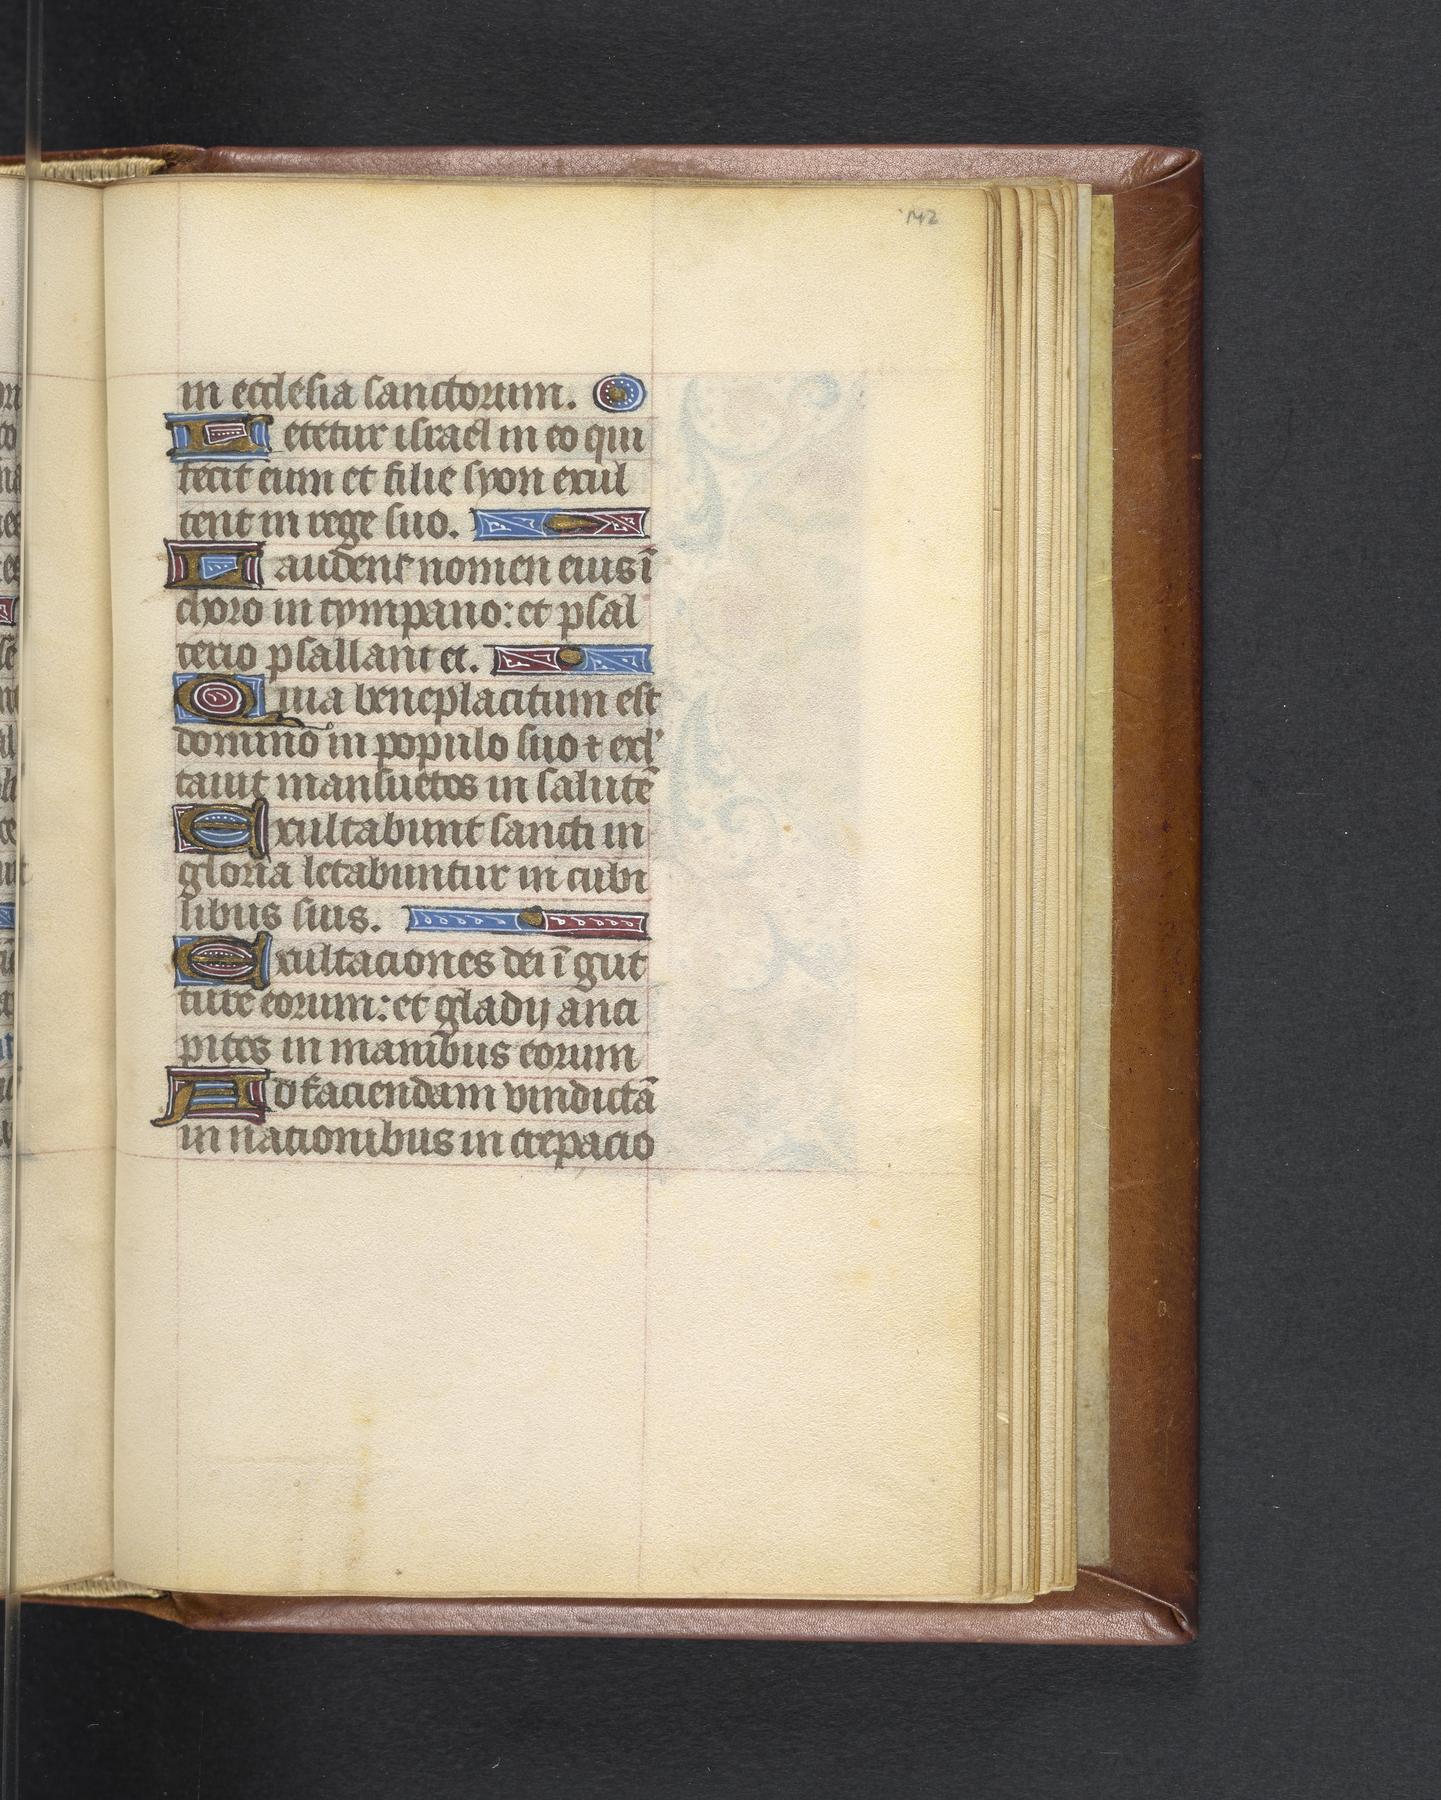 142
in ecclesia sanctorum.
Letetur israel in eo qui
fecit eum et filie syon exul
tent in rege suo.
Laudent nomen eius ī
choro in tympano: et psal
terio psallant ei.
Quia beneplacitum est
domino in populo suo ⁊ exl'
tauit mansuetos in salutē
Exultabunt sancti in
gloria letabuntur in cubi
libus suis.
Exultaciones dei ī gut
ture eorum: et gladij anci
pites in manibus eorum
Ad faciendam vindictā
in nationibus in crepacio